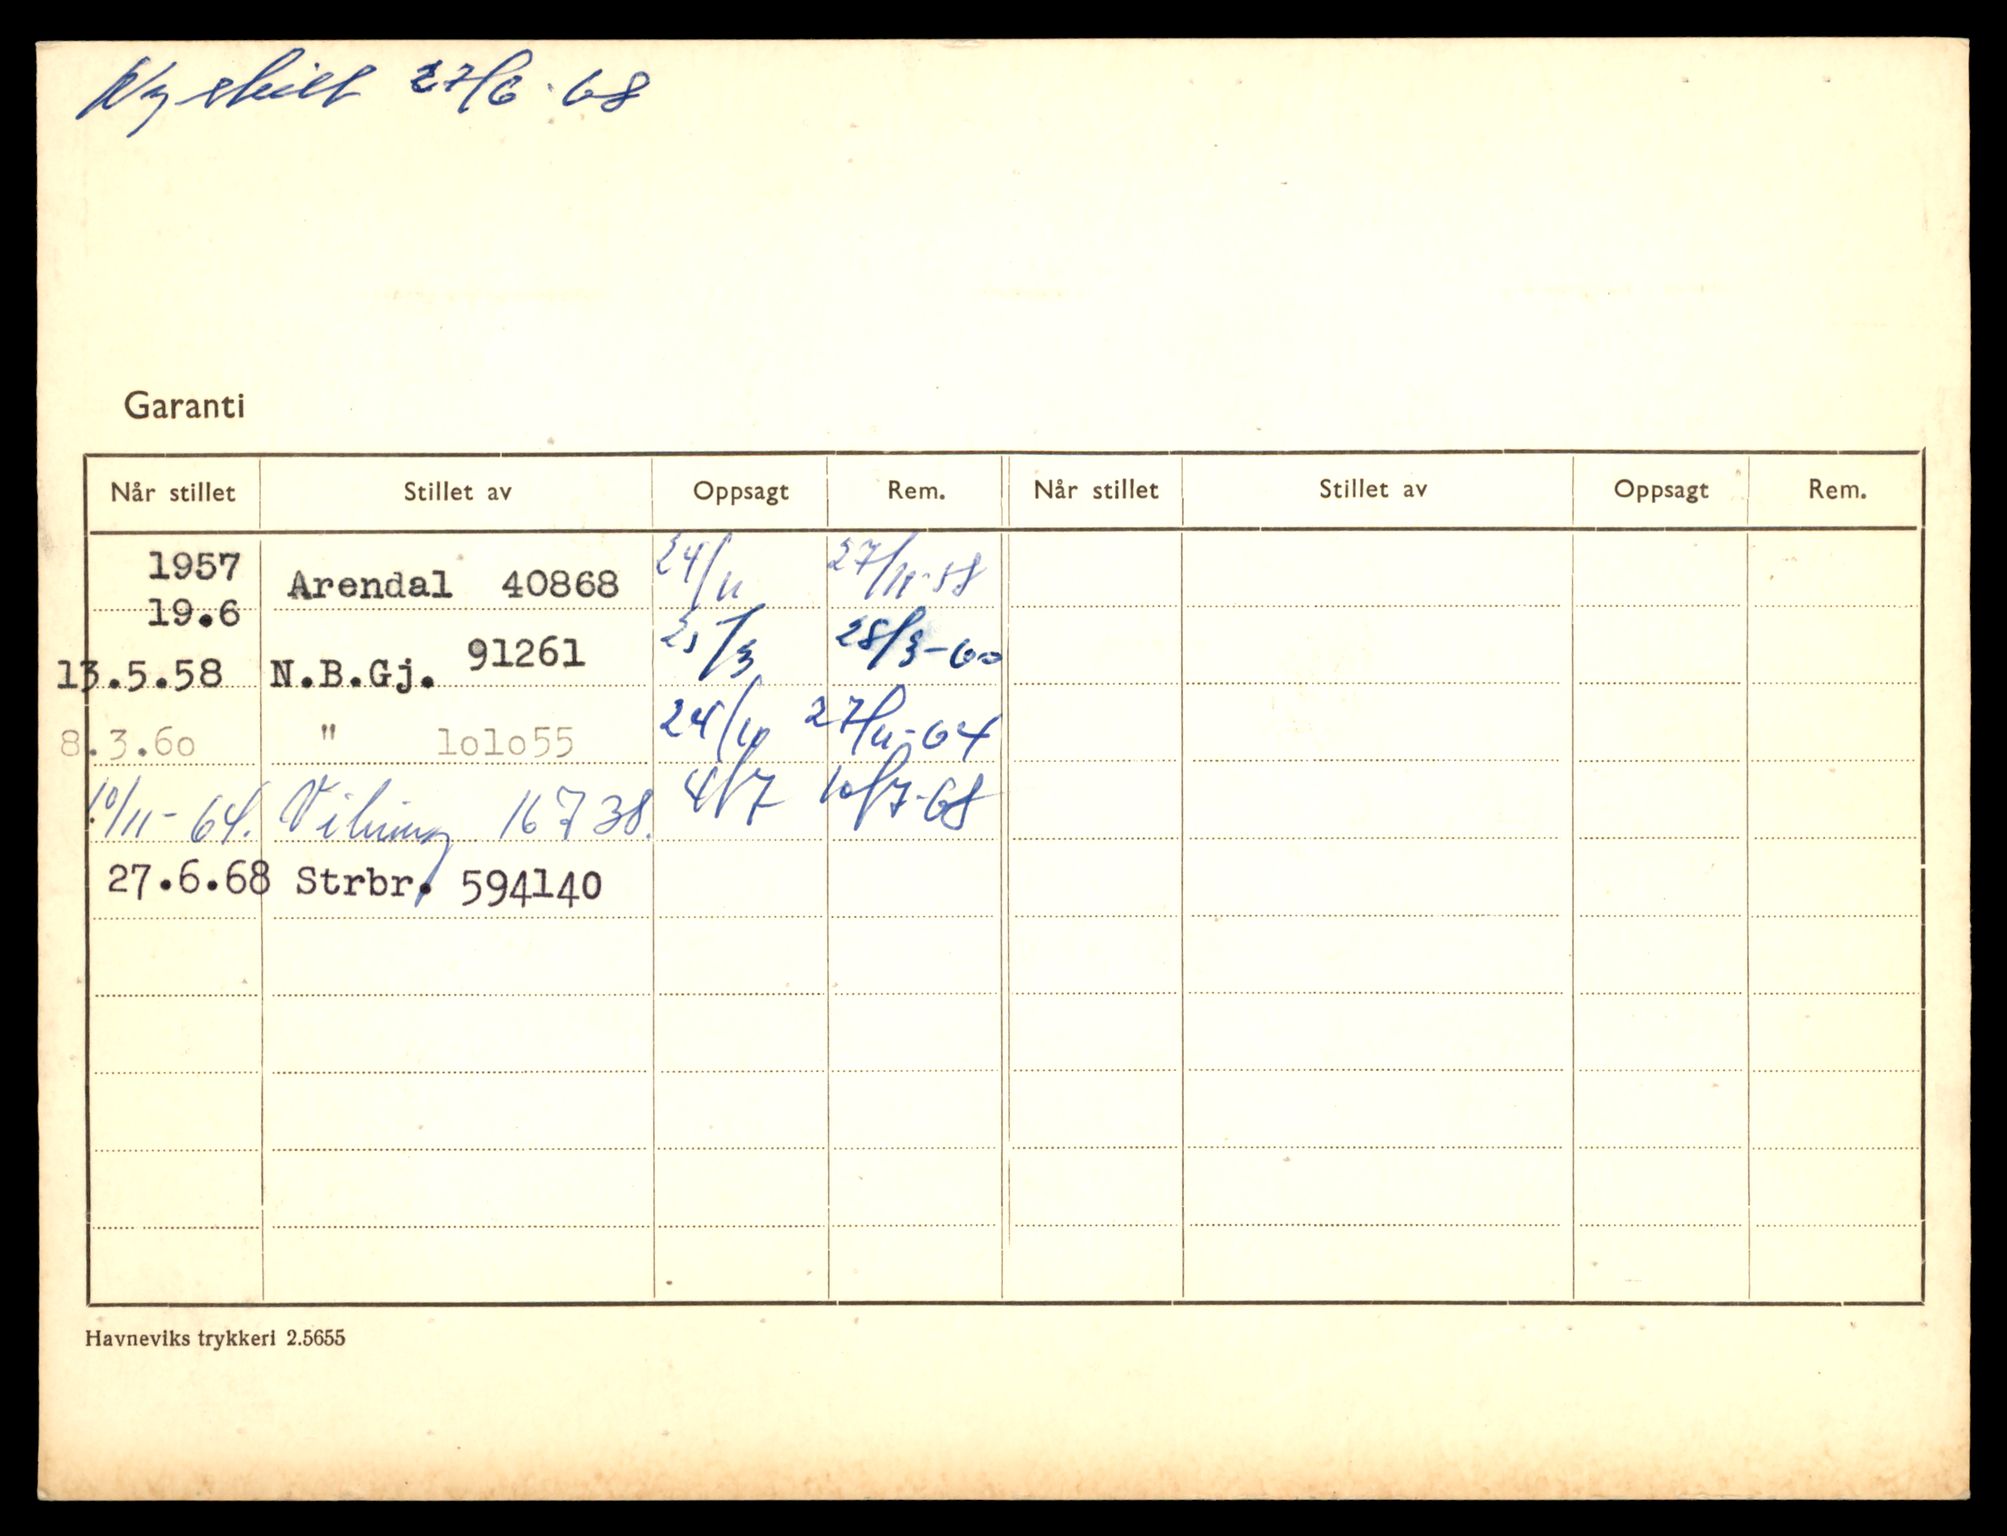 Ny skilt 27/6-68
Garanti
Når stillet Stillet av Oppsagt Rem. Når stillet Stillet av Oppsagt Rem.
1957
19.6 Arendal 40868 24/11 27/11-58
13.5.58 N.B.Gj. 91261 25/3 28/3-60
8.3.60 " 1o1o55 24/10 27/11-64
10/11-64. Viking 16738. 4/7 10/7-68
27.6.68 Strbr. 594140
Havneviks trykkeri 2.5655